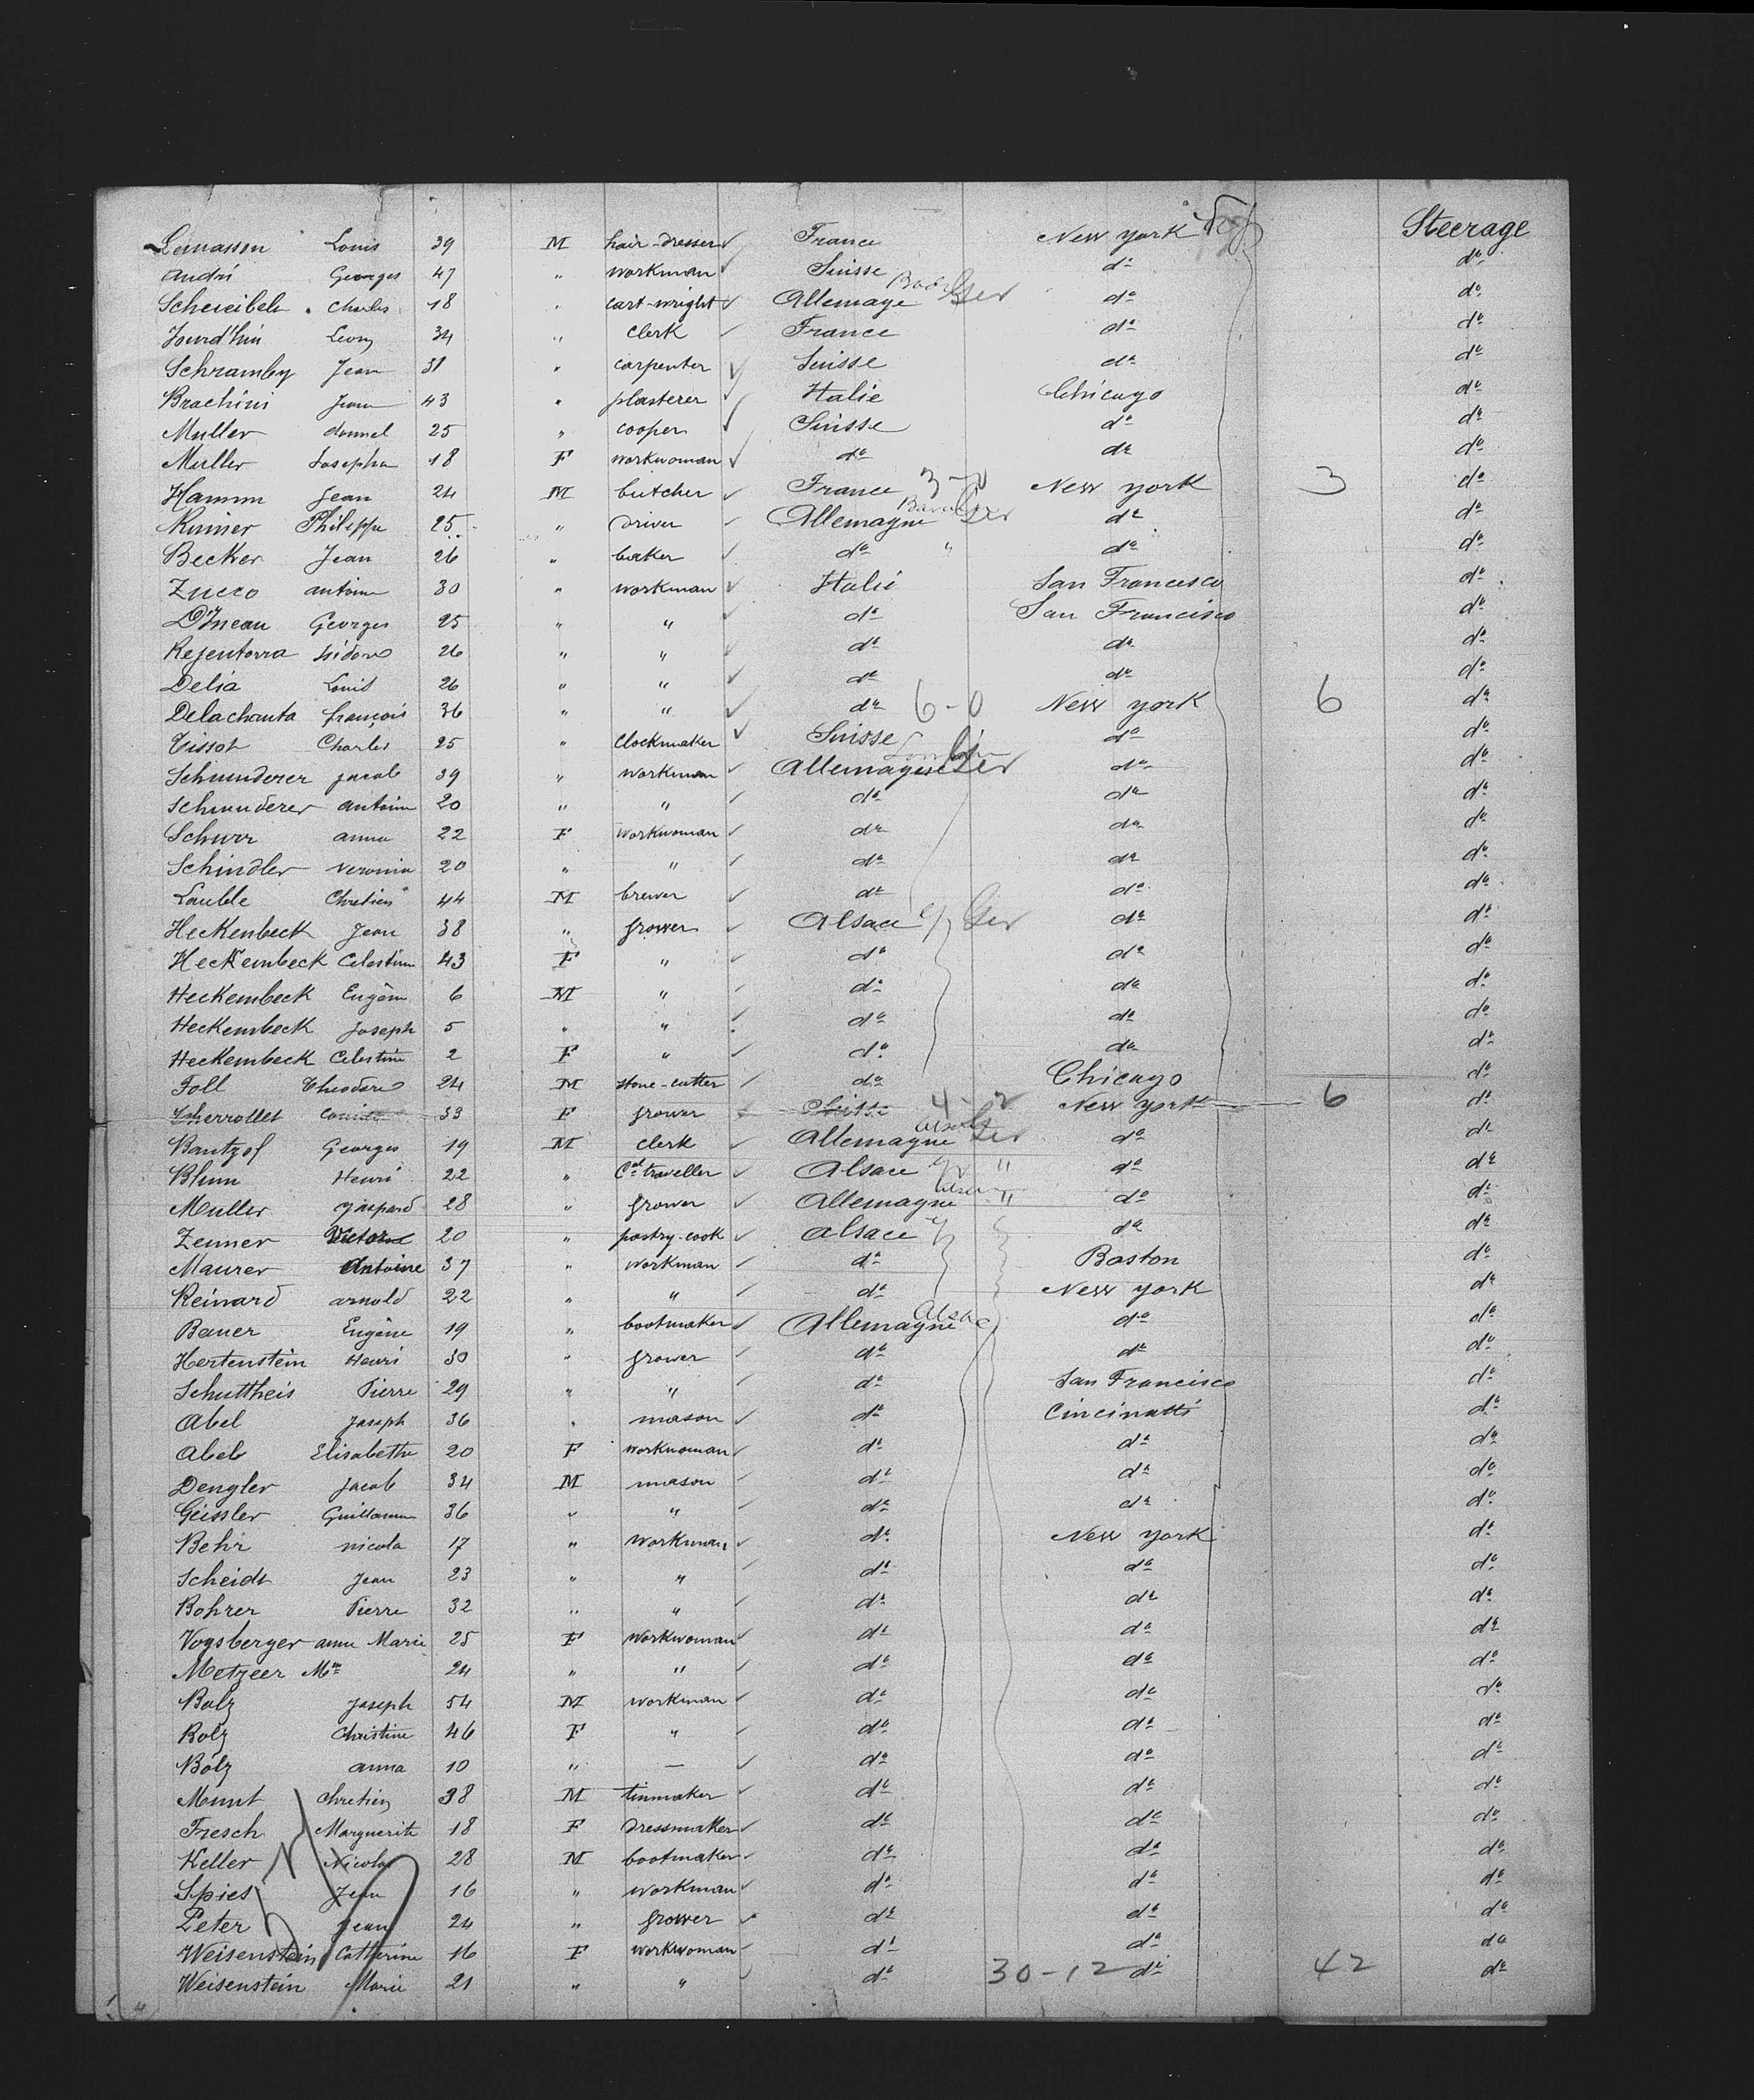 Lemasson Louis 39 M hair-dresser France New york Steerage
André Georges 47 " workman Suisse do do
Scheweibeh Charles 18 " cart-wright Allemage Ger do do
Léon 34 " clerk France do do
Schramby Jean 31 " carpenter Suisse do do
Brachini Jean 43 " plasterer Italie Chicago do
Muller 25 " cooper Suisse do do
Muller Josepha 18 F workwoman do do do
Hamm Jean 24 M butcher France 3-0 New york 3 do
Philippe 25 " driver Allemagne Bavaria Ger do do
Becker Jean 26 " baker do " do do
Zucco antoine 30 " workman Italie San Francisco do
Georges 25 " " do San Francisco do
Rejentorra Isidore 26 " " do do do
Delia Louis 26 " " do do do
Delachanta françois 36 " " do 6-0 New york 6 do
Tissot Charles 25 " Clockmaker Suisse do do
Schmunderer jacob 39 " workman Allemagne Ger do do
Schmunderer antoine 20 " " do do do
Schurr anna 22 F workwoman do do do
Schindler veronica 20 " " do do do
Lauble Chretien 44 M brewer do do do
Heckenbeck Jean 38 " grower Alsace Ger do do
Heckembeck Celestine 43 F " do do do
Heckembeck Eugène 6 M " do do do
Heckembeck Joseph 5 " " do do do
Heckembeck Celestine 2 F " do do do
Foll Theodore 24 M stone-cutter do Chicago do
Louise 33 F grower Suisse 4-2 New york 6 do
Bantzof Georges 19 M clerk Allemagne Alsace Ger do do
Blum Henri 22 " Cal traveller Alsace " do do
Muller gaspard 28 " grower Allemagne Alsace " do do
Zenner Victor 20 " pastry-cook alsace do do
Maurer Antoine 37 " workman do Boston do
Reinard arnold 22 " " do New york do
Bauer Eugène 19 " bootmaker Allemagne Alsace do do
Hertenstein Henri 30 " grower do do do
Schuttheis Pierre 29 " " do San Francisco do
Abel Joseph 36 " mason do Cincinatti do
Abel Elisabethe 20 F workwoman do do do
Dengler Jacob 34 M mason do do do
Geissler Guillaume 36 " " do do do
Behr nicola 17 " workman do New york do
Scheidt Jean 23 " " do do do
Bohrer Pierre 32 " " do do do
Vogsberger anne Marie 25 F workwoman do do do
Metzeer Mme 24 " " do do do
Bolz Joseph 54 M workman do do do
Bolz Christine 46 F " do do do
Bolz anna 10 " — do do do
Munt chretien 38 M tinmaker do do do
Fresch Marguerite 18 F dressmaker do do do
Keller Nicolas 28 M bootmaker do do do
Spies Jean 16 " workman do do do
Peter Jean 24 " grower do do do
Weisenstein Catherine 16 F workwoman do do do
Weisenstein Marie 21 " " do 30-12 do 42 do